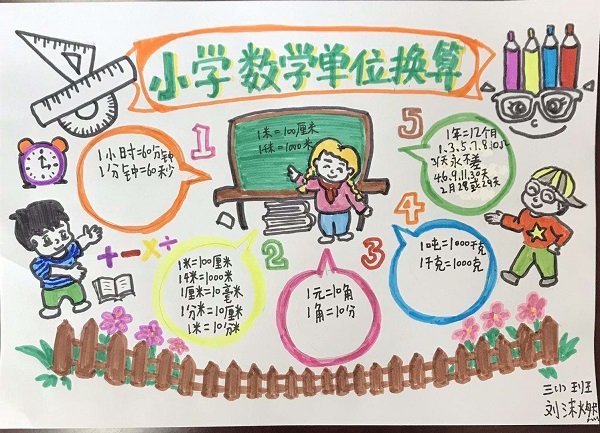 小学数学单位换算
1
1小时=60分钟
1分钟=60秒
1米=100厘米
1千米=1000米
5
1年=12个月
1.3.5.7.8.10.12
31天永不差
4.6.9.11.30天
2月28或29天
+-×÷
2
1米=100厘米
1千米=1000米
1厘米=10毫米
1分米=10厘米
1米=10分米
3
1元=10角
1角=10分
4
1吨=1000千克
1千克=1000克
三(1)班
刘沫燃